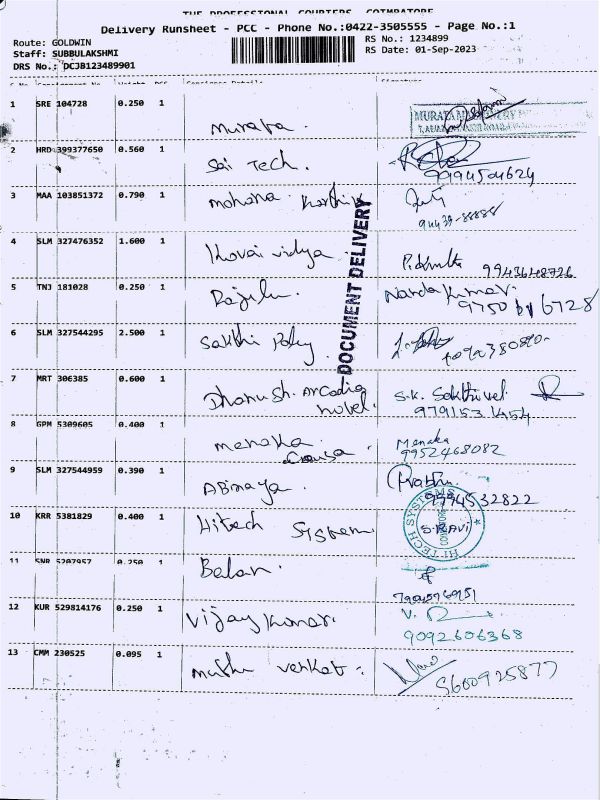 THE PROFESSIONAL COURIERS, COIMBATORE
Delivery Runsheet - PCC - Phone No.:0422-3505555 - Page No.:1
Route: GOLDWIN
RS No.: 1234899
Staff: SUBBULAKSHMI
RS Date: 01-Sep-2023
DRS No.: DCJB123489901
1 SRE 104728 0.250 1 murata.
2 HRD 399377650 0.560 1 Sai Tech. 9994504624
3 MAA 103851372 0.790 1 mohana Karthik 94439-88888
4 SLM 327476352 1.600 1 Kovai vidya 9943648726
5 TNJ 181028 0.250 1 Rajilu. Nanda Kumar.
6 SLM 327544295 2.500 1 Sakthi Poly
7 MRT 306385 0.600 1 Dhanush. Arcadia hotel. S.K. Sakthivel
9791531454
8 GPM 5309605 0.400 1 menaka Menaka
9952468082
9 SLM 327544959 0.390 1 Abinaya.
9994532822
10 KRR 5381829 0.400 1 Hitech System S.RAVI
HI TECH SYSTEMS
11 SNR 5207957 0.250 1 Balan.
12 KUR 529814176 0.250 1 Vijay Kumar.
9092606368
13 CMM 230525 0.095 1 muthu venkat
9600925877
DOCUMENT DELIVERY